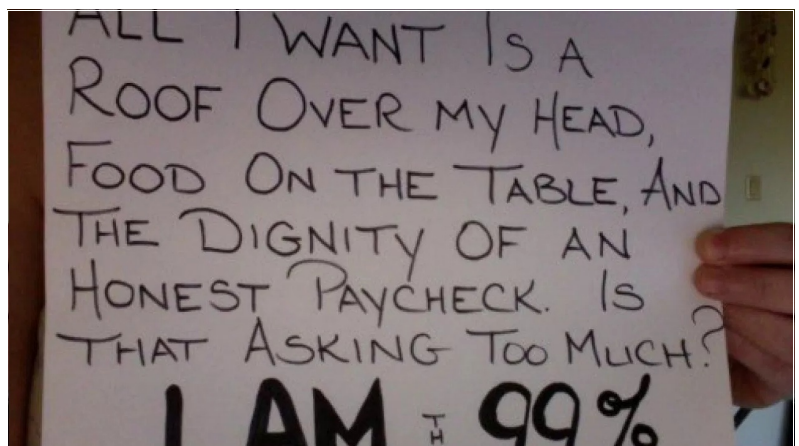 ALL I WANT IS A
ROOF OVER MY HEAD,
FOOD ON THE TABLE, AND
THE DIGNITY OF AN
HONEST PAYCHECK. IS
THAT ASKING TOO MUCH?
I AM TH 99%